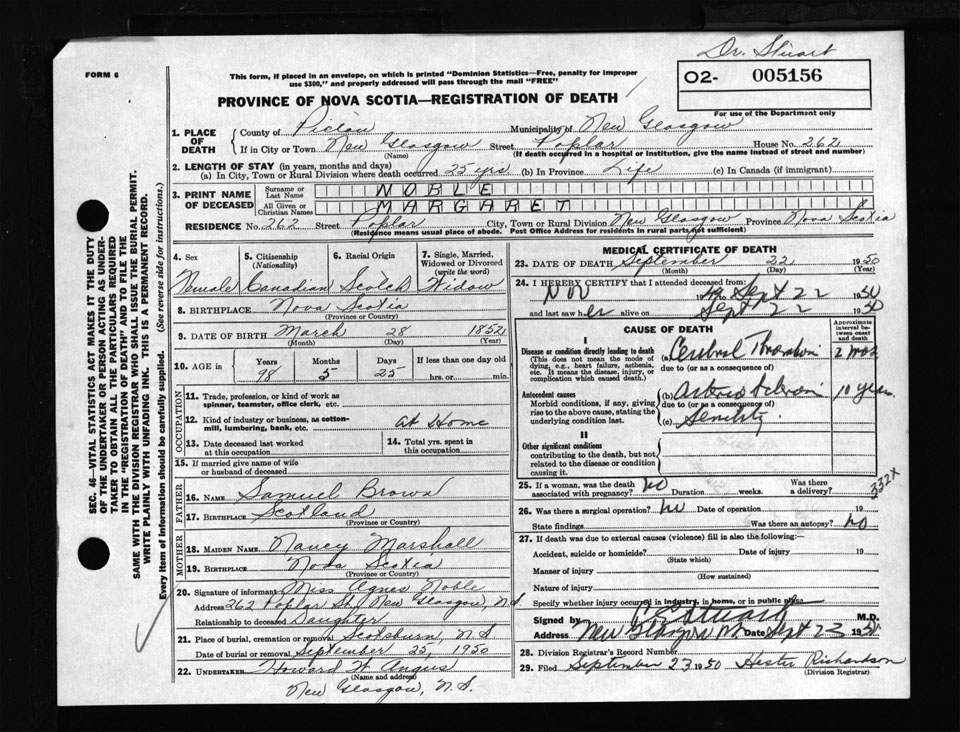 Dr. Stuart
FORM 6
This form, if placed in an envelope, on which is printed "Dominion Statistics—Free, penalty for improper
use $300," and properly addressed will pass through the mail "FREE"
O2- 005156
For use of the Department only
PROVINCE OF NOVA SCOTIA—REGISTRATION OF DEATH
1. PLACE OF DEATH County of Pictou Municipality of New Glasgow
If in City or Town New Glasgow (Name) Street Poplar House No. 262
(If death occurred in a hospital or institution, give the name instead of street and number)
2. LENGTH OF STAY (in years, months and days)
(a) In City, Town or Rural Division where death occurred 25 yrs (b) In Province Life (c) In Canada (if immigrant)
3. PRINT NAME OF DECEASED Surname or Last Name NOBLE
All Given or Christian Names MARGARET
RESIDENCE No. 262 Street Poplar City, Town or Rural Division New Glasgow Province Nova Scotia
(Residence means usual place of abode. Post Office Address for residents in rural parts not sufficient)
SEC. 46—VITAL STATISTICS ACT MAKES IT THE DUTY
OF THE UNDERTAKER OR PERSON ACTING AS UNDER-
TAKER TO OBTAIN ALL THE PARTICULARS REQUIRED
IN THE "REGISTRATION OF DEATH" AND TO FILE THE
SAME WITH THE DIVISION REGISTRAR WHO SHALL ISSUE THE BURIAL PERMIT.
WRITE PLAINLY WITH UNFADING INK. THIS IS A PERMANENT RECORD.
Every item of information should be carefully supplied. (See reverse side for instructions.)
4. Sex Female
5. Citizenship (Nationality) Canadian
6. Racial Origin Scotch
7. Single, Married, Widowed or Divorced (write the word) Widow
8. BIRTHPLACE Nova Scotia
(Province or Country)
9. DATE OF BIRTH March 28 1852
(Month) (Day) (Year)
10. AGE in Years 98 Months 5 Days 25 If less than one day old hrs. or min.
OCCUPATION
11. Trade, profession, or kind of work as
spinner, teamster, office clerk, etc.
12. Kind of industry or business, as cotton-
mill, lumbering, bank, etc. At Home
13. Date deceased last worked
at this occupation
14. Total yrs. spent in
this occupation
15. If married give name of wife
or husband of deceased
FATHER
16. NAME Samuel Brown
17. BIRTHPLACE Scotland
(Province or Country)
MOTHER
18. MAIDEN NAME Nancy Marshall
19. BIRTHPLACE Nova Scotia
(Province or Country)
20. Signature of informant Miss Agnes Noble
Address 262 Poplar St, New Glasgow, N.S.
Relationship to deceased Daughter
21. Place of burial, cremation or removal Scotsburn, N.S.
Date of burial or removal September 25, 1950
22. UNDERTAKER Howard W Angus
(Name and address)
New Glasgow, N.S.
MEDICAL CERTIFICATE OF DEATH
23. DATE OF DEATH September 22 1950
(Month) (Day) (Year)
24. I HEREBY CERTIFY that I attended deceased from:
Nov 1949 Sept 22 1950
and last saw her alive on Sept 22 1950
CAUSE OF DEATH
Approximate interval between onset and death
I
Disease or condition directly leading to death
(This does not mean the mode of
dying, e.g., heart failure, asthenia,
etc. It means the disease, injury, or
complication which caused death.)
(a) Cerebral 2 mos
due to (or as a consequence of)
Antecedent causes
Morbid conditions, if any, giving
rise to the above cause, stating the
underlying condition last.
(b) 10 years
due to (or as a consequence of)
(c) Senility
II
Other significant conditions
contributing to the death, but not
related to the disease or condition
causing it.
332X
25. If a woman, was the death
associated with pregnancy? No Duration weeks. Was there
a delivery?
26. Was there a surgical operation? No Date of operation 19
State findings Was there an autopsy? No
27. If death was due to external causes (violence) fill in also the following:—
Accident, suicide or homicide? Date of injury 19
(State which)
Manner of injury
(How sustained)
Nature of injury
Specify whether injury occurred in industry, in home, or in public place
Signed by Stuart M.D.
Address New Glasgow Date Sept 23 1950
28. Division Registrar's Record Number
29. Filed September 23 1950 Hester Richardson
(Division Registrar)